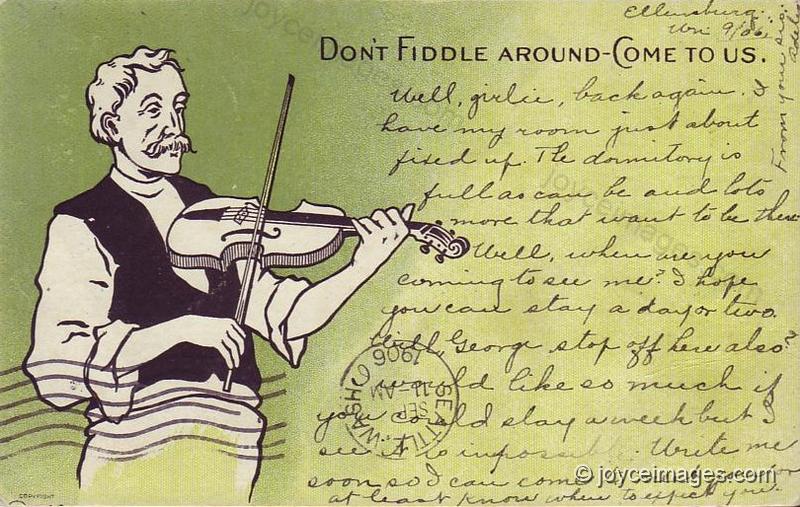 Ellensburg.
Wn. 9/06.
DON'T FIDDLE AROUND-COME TO US.
Well, girlie, back again. I
have my room just about
fixed up. The dormitory is
full as can be and lots
more that want to be there
Well, when are you
coming to see me? I hope
you can stay a day or two.
Will George stop off here also?
I would like so much if
you could stay a week but I
see it is impossible. Write me
soon so I can come
at least know where to expect you.
From your sis.
SEATTLE, WASH.
SEP
11-AM
1906
COPYRIGHT
© joyceimages.com